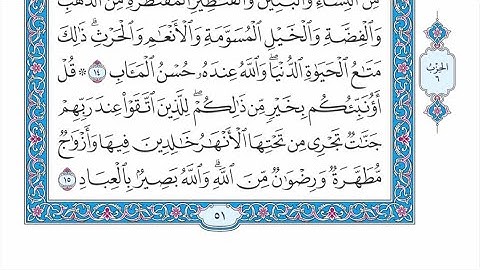 مِنَ ٱلنِّسَآءِ وَٱلْبَنِينَ وَٱلْقَنَٰطِيرِ ٱلْمُقَنطَرَةِ مِنَ ٱلذَّهَبِ
وَٱلْفِضَّةِ وَٱلْخَيْلِ ٱلْمُسَوَّمَةِ وَٱلْأَنْعَٰمِ وَٱلْحَرْثِ ۗ ذَٰلِكَ
مَتَٰعُ ٱلْحَيَوٰةِ ٱلدُّنْيَا ۖ وَٱللَّهُ عِندَهُۥ حُسْنُ ٱلْمَـَٔابِ ١٤ ۞ قُلْ
أَؤُنَبِّئُكُم بِخَيْرٍ مِّن ذَٰلِكُمْ ۚ لِلَّذِينَ ٱتَّقَوْا۟ عِندَ رَبِّهِمْ
جَنَّٰتٌ تَجْرِى مِن تَحْتِهَا ٱلْأَنْهَٰرُ خَٰلِدِينَ فِيهَا وَأَزْوَٰجٌ
مُّطَهَّرَةٌ وَرِضْوَٰنٌ مِّنَ ٱللَّهِ ۗ وَٱللَّهُ بَصِيرٌۢ بِٱلْعِبَادِ ١٥
الحزب
٦
٥١